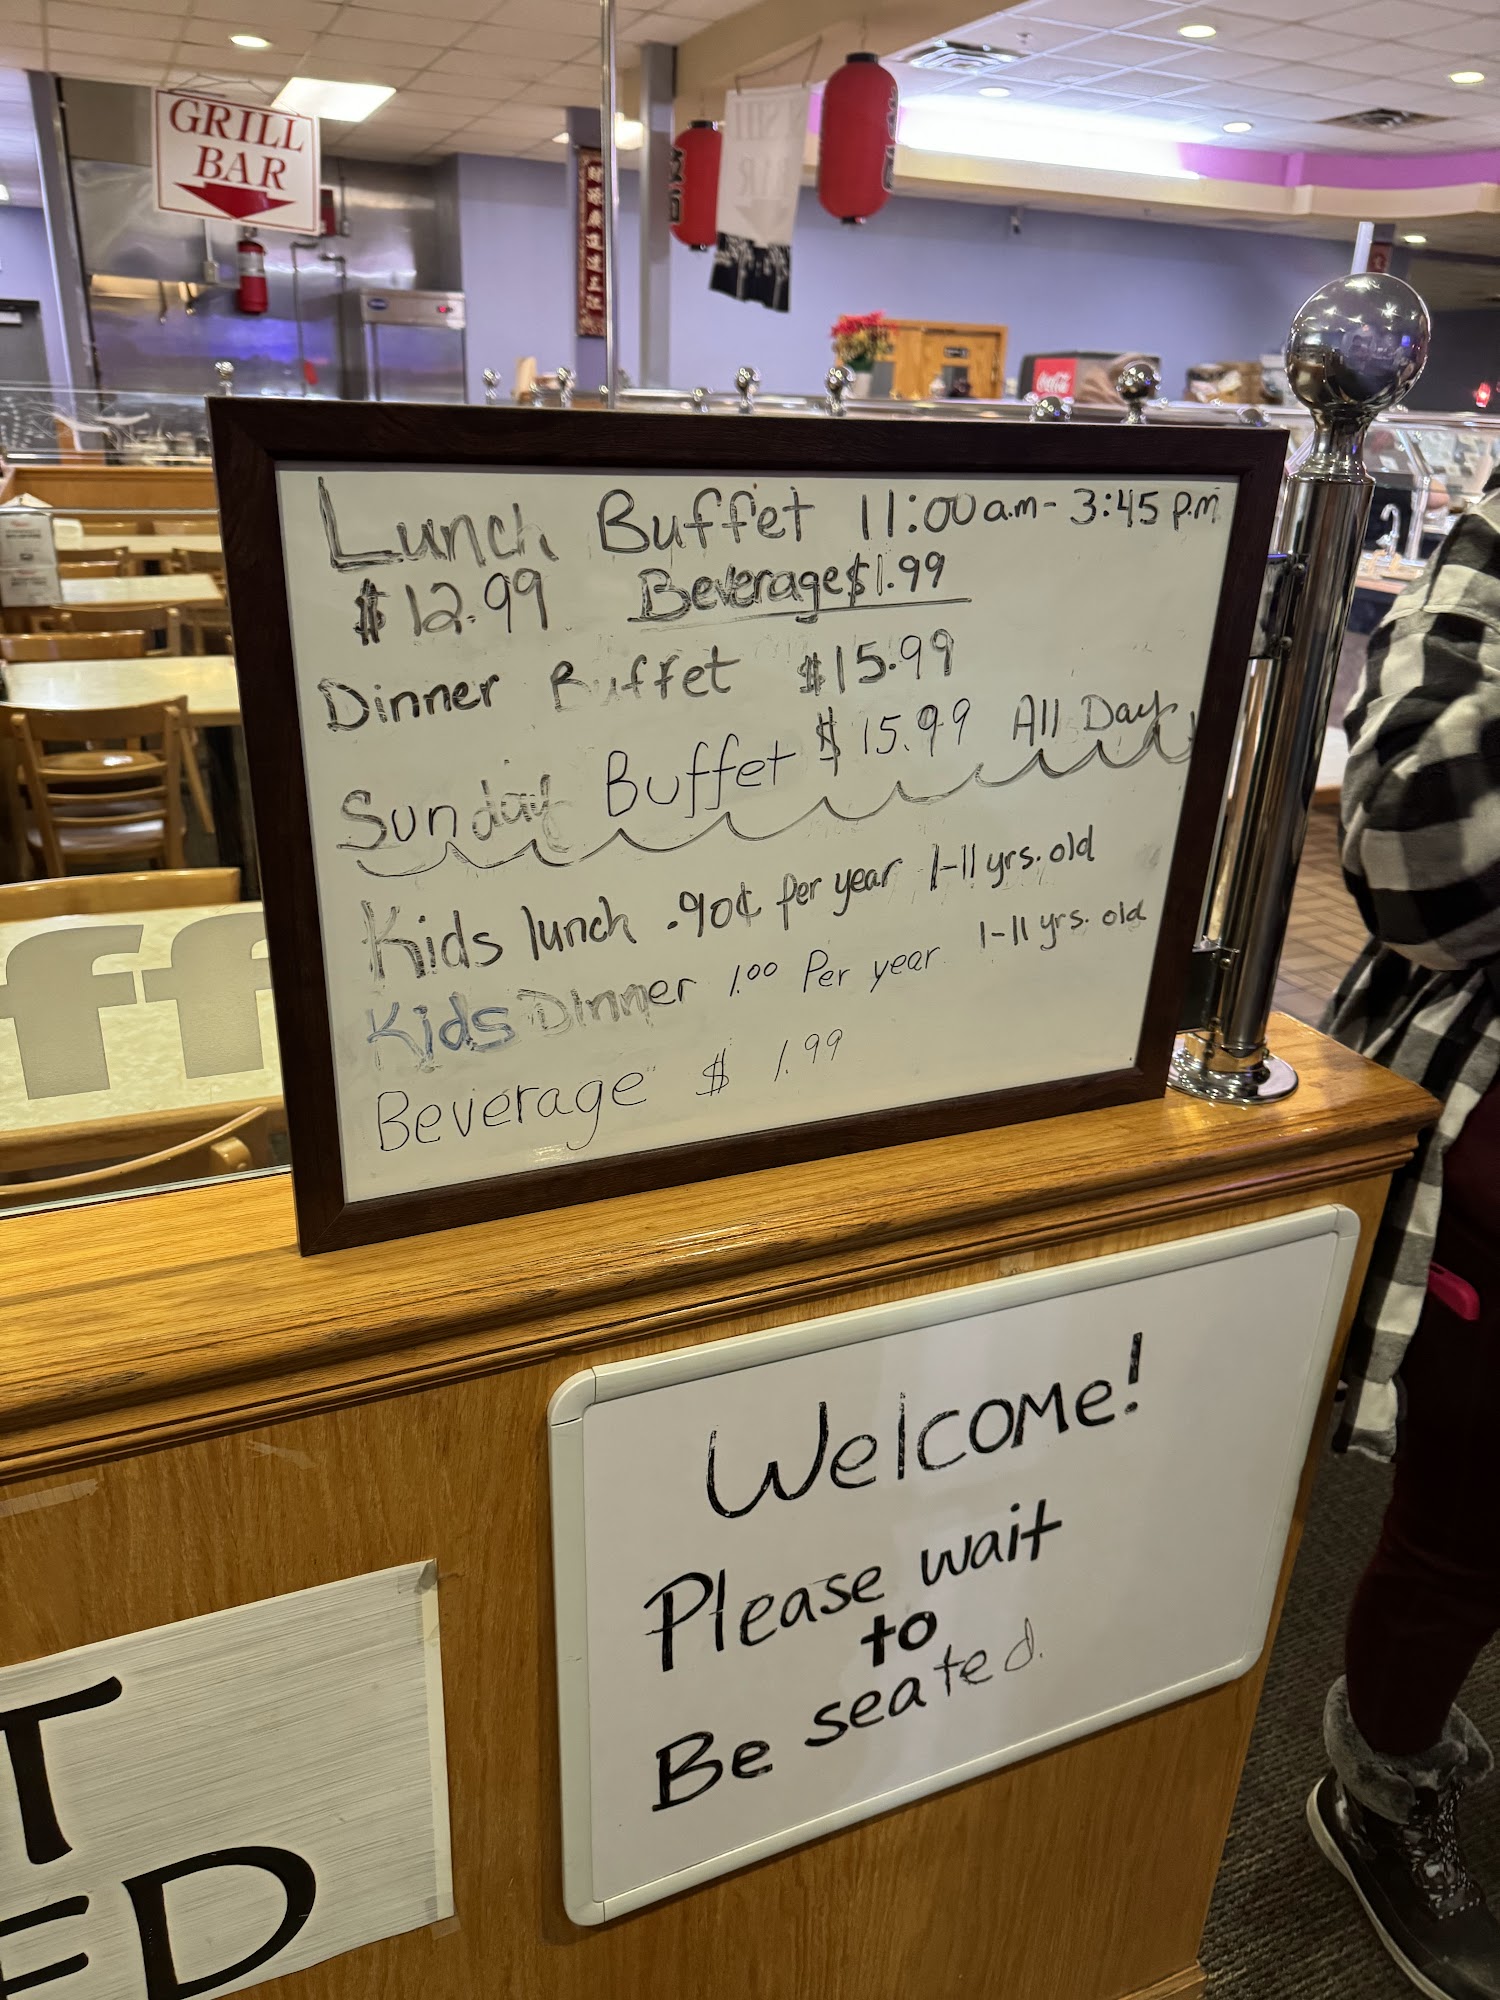 GRILL
BAR
Coca-Cola
Lunch Buffet 11:00 a.m - 3:45 p.m
$12.99 Beverage $1.99
Dinner Buffet $15.99
Sunday Buffet $15.99 All Day
Kids lunch .90¢ per year 1-11 yrs. old
Kids Dinner 1.00 Per year 1-11 yrs. old
Beverage $ 1.99
ff
Welcome!
Please wait
to
Be seated.
T
ED